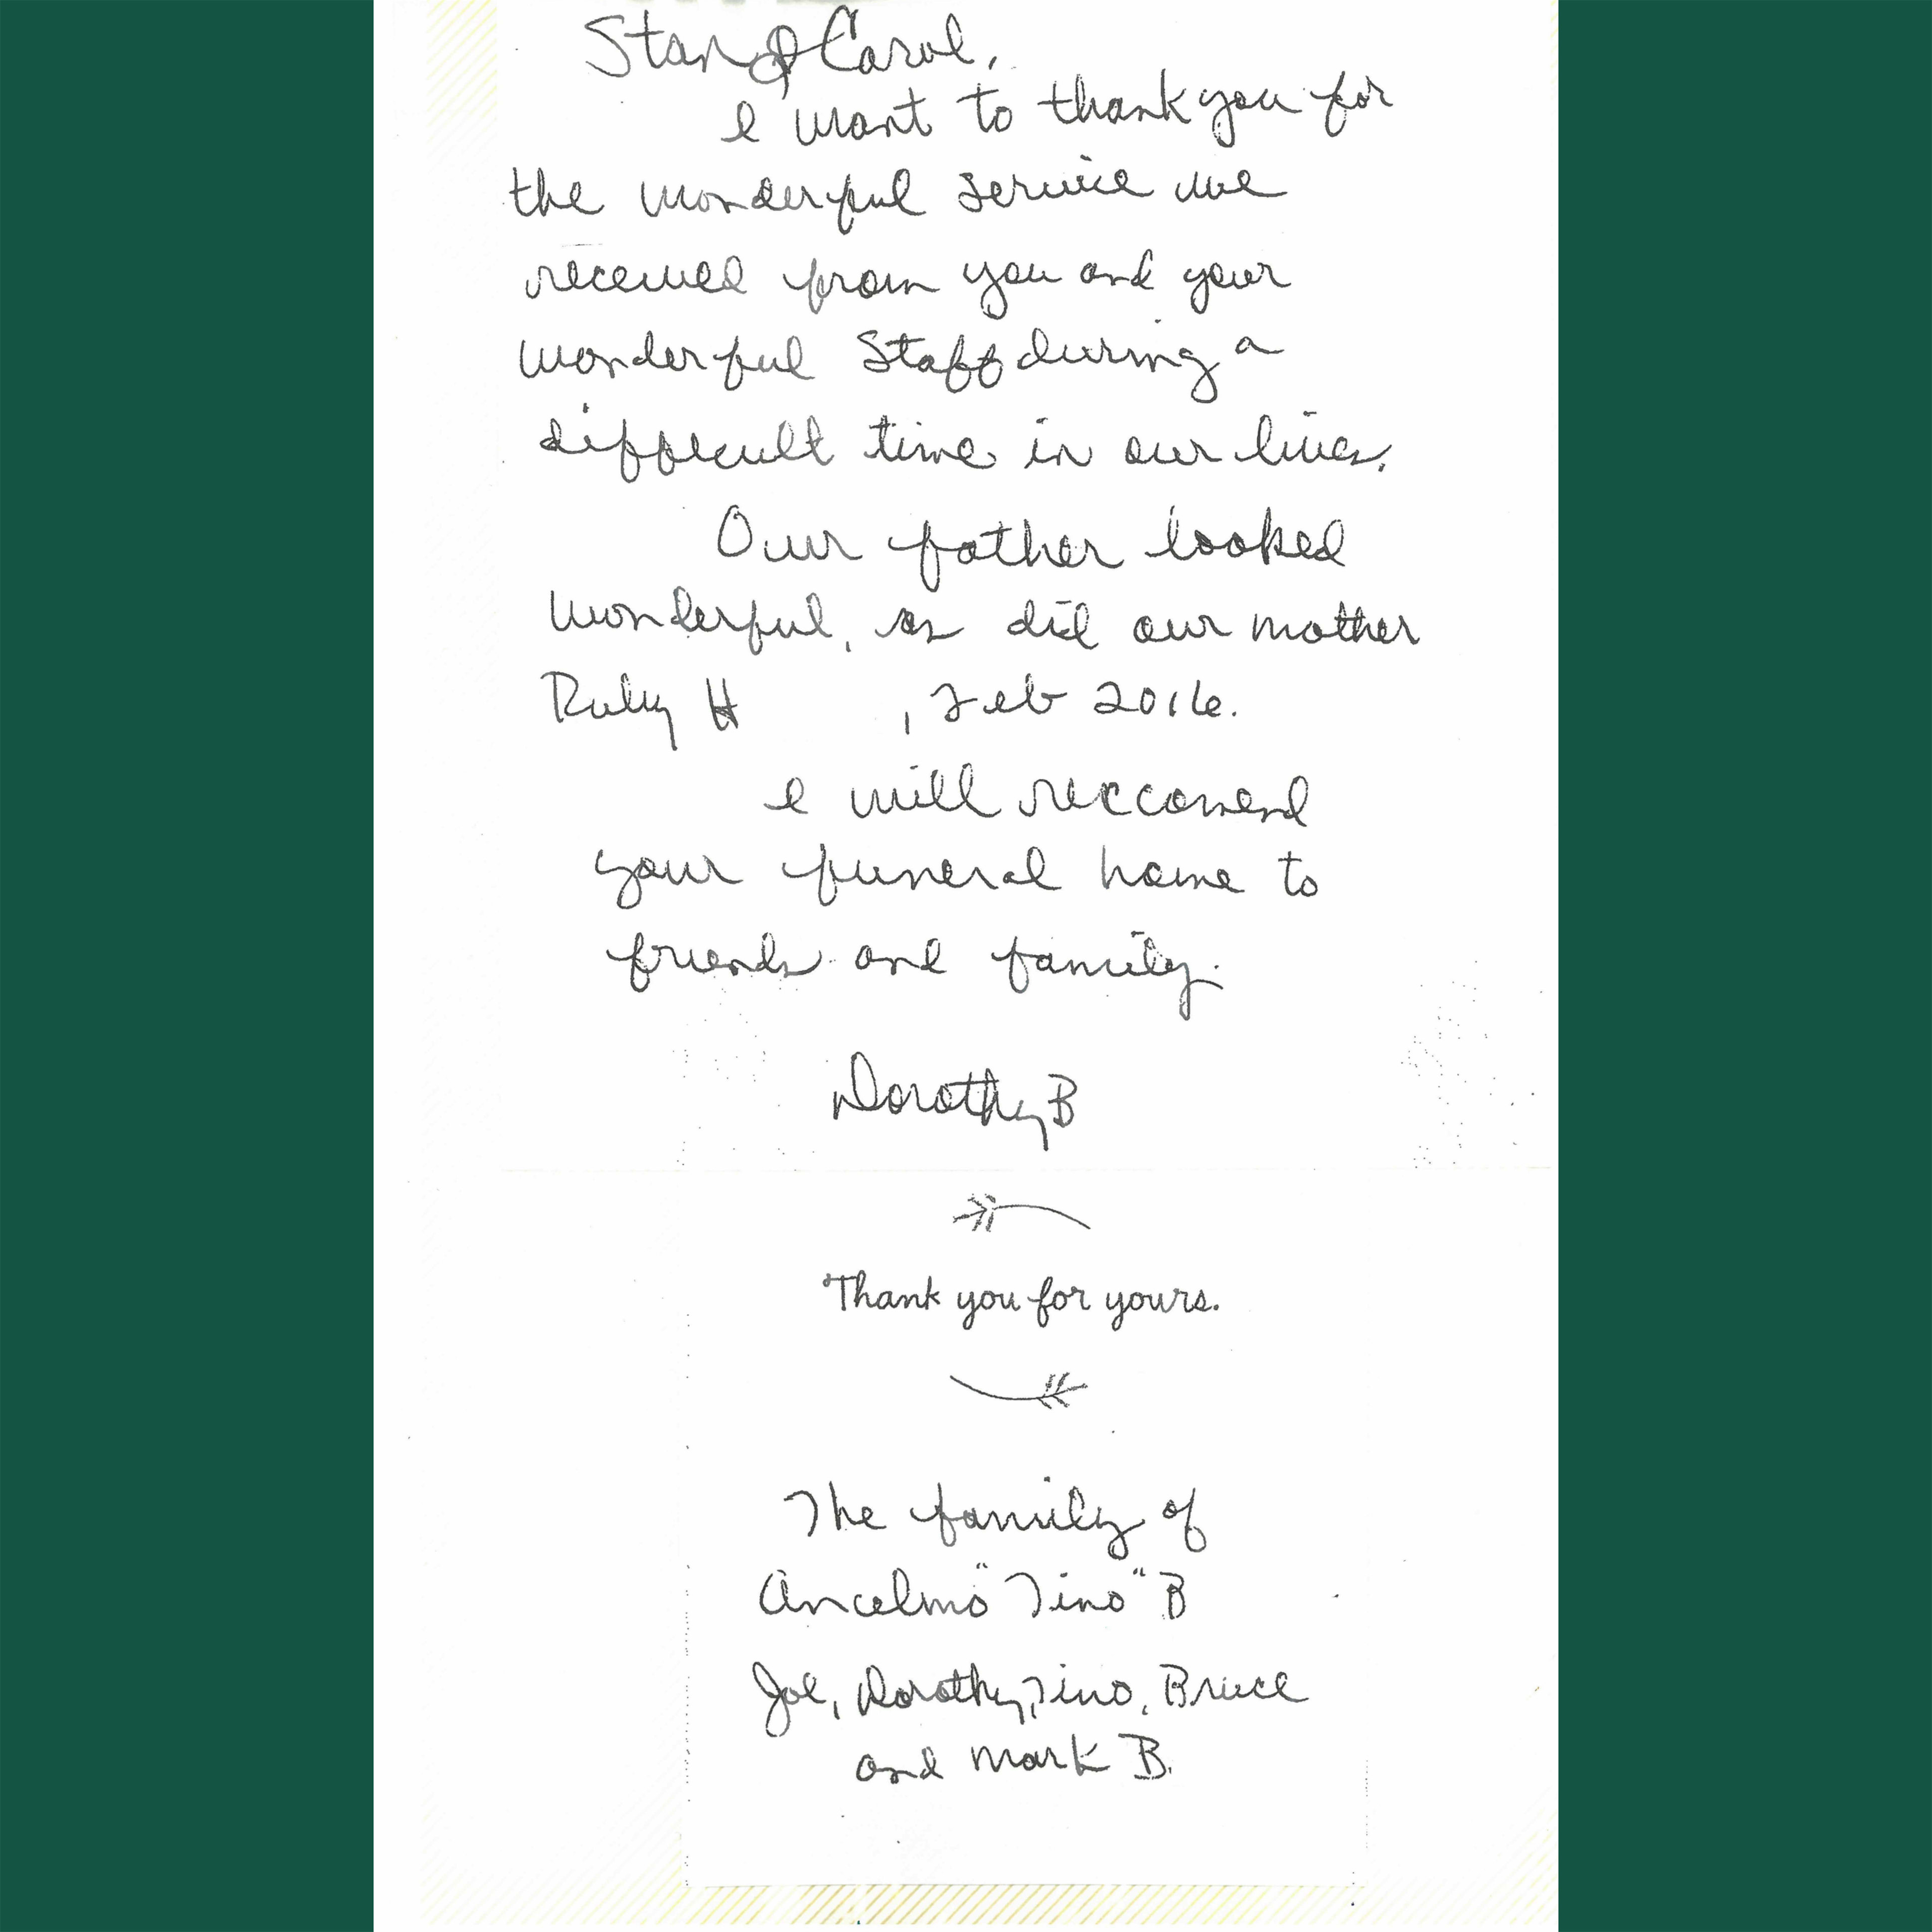 Stan & Carol,
I want to thank you for
the wonderful service we
received from you and your
wonderful Staff during a
difficult time in our lives.
Our father looked
wonderful, as did our mother
Ruby H , Feb 2016.
I will reccomend
your funeral home to
friends and family.
Dorothy B
Thank you for yours.
The family of
Ancelmo "Tino" B
Joe, Dorothy, Tino, Bruce
and Mark B.